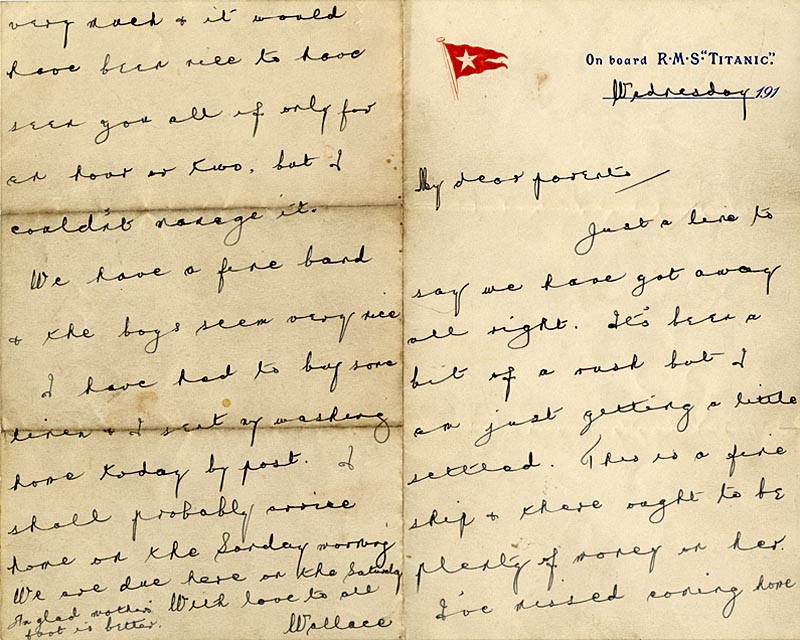 On board R·M·S·"TITANIC".
Wednesday 191
My dear parents
Just a line to
say we have got away
all right. It's been a
bit of a rush but I
am just getting a little
settled. This is a fine
ship & there ought to be
plenty of money on her.
I've missed coming home
very much & it would
have been nice to have
seen you all if only for
an hour or two, but I
couldn't manage it.
We have a fine band
& the boys seem very nice
I have had to buy some
linen & I sent my washing
home today by post. I
shall probably arrive
home on the Sunday morning
We are due here on the Saturday
I'm glad mother's
foot is better.
With love to all
Wallace